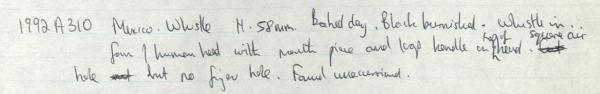 1992 A310 Mexico. Whistle H. 58mm. Baked clay. Black burnished. Whistle in..
form of human head with mouth piece and loop handle on top of head. Square air
hole but no finger hole. Found unaccessioned.